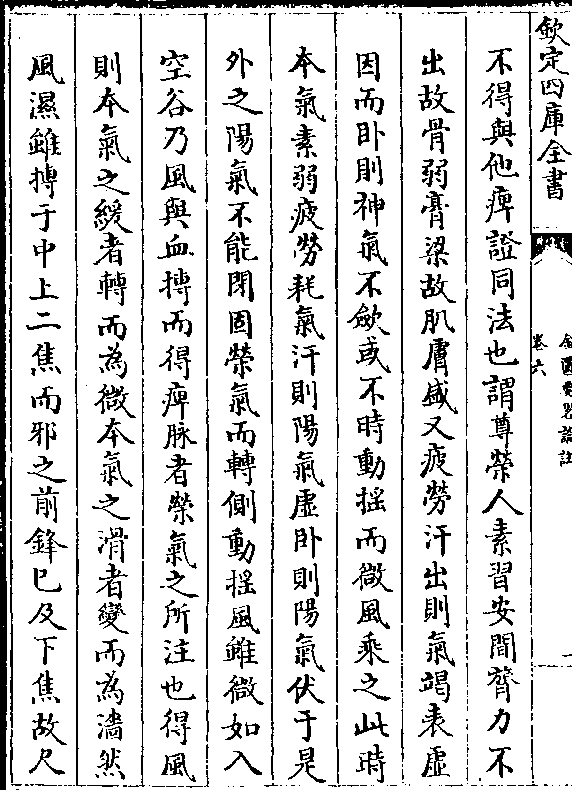 欽定四庫全書
金匱要畧論註
卷六
不得與他痺證同法也謂尊榮人素習安閒膂力不
出故骨弱膏粱故肌膚盛又疲勞汗出則氣竭表虛
因而卧則神氣不斂或不時動揺而微風乘之此時
本氣素弱疲勞耗氣汗則陽氣虛卧則陽氣伏于是
外之陽氣不能閉固榮氣而轉側動揺風雖微如入
空谷乃風與血搏而得痺脉者榮氣之所注也得風
則本氣之緩者轉而為微本氣之滑者變而為濇然
風濕雖搏于中上二焦而邪之前鋒已及下焦故尺